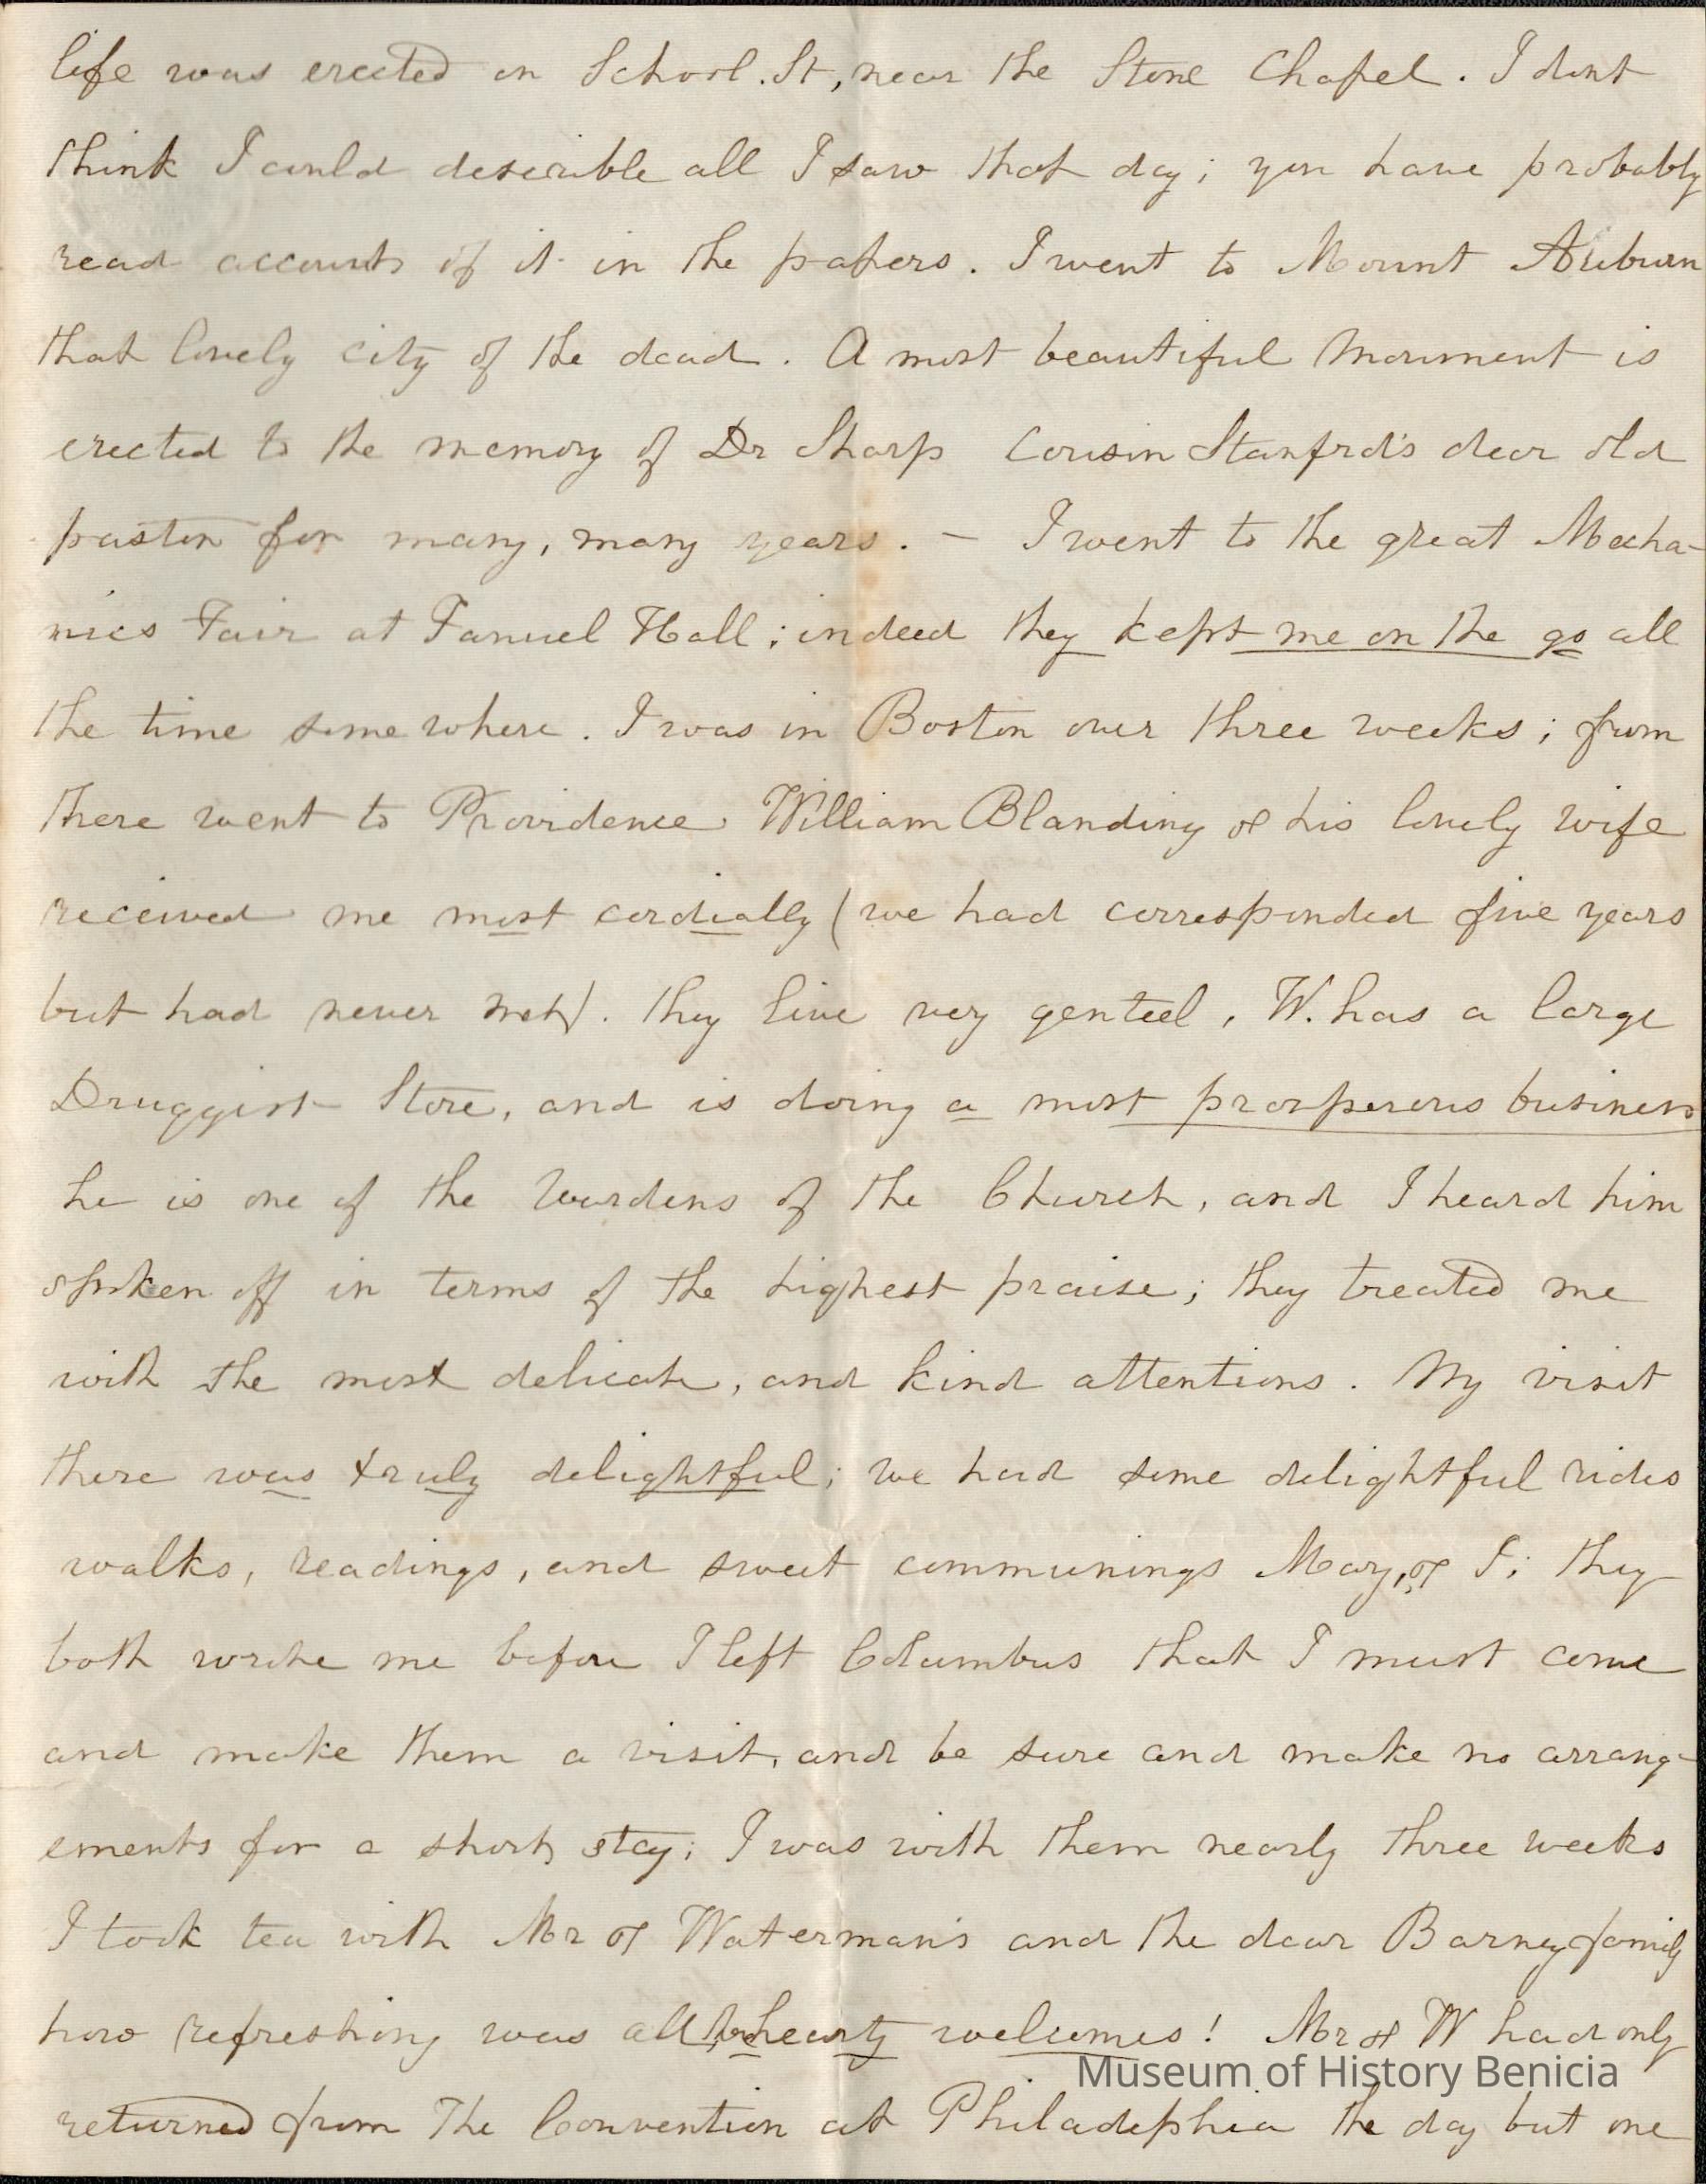 life was erected on School. St, near the Stone Chapel. I dont
think I could describle all I saw that day; you have probably
read accounts of it in the papers. I went to Mount Auburn
that lovely city of the dead. A most beautiful Monument is
erected to the memory of Dr Sharp Cousin Stanford's dear old
pastor for many, many years. – I went to the great Mecha-
nics Fair at Fanuel Hall; indeed they kept me on the go all
the time somewhere. I was in Boston over three weeks; from
there went to Providence William Blanding & his lovely wife
received me most cordially (we had corresponded five years
but had never met). they live very genteel, W. has a large
Druggist Store, and is doing a most prosperous business
he is one of the Wardens of the Church, and I heard him
spoken off in terms of the highest praise; they treated me
with the most delicate, and kind attentions. My visit
there was truly delightful; we had some delightful rides
walks, readings, and sweet communings Mary, & I; they
both wrote me before I left Columbus that I must come
and make them a visit, and be sure and make no arrang-
ements for a short stay; I was with them nearly three weeks
I took tea with Mr & Waterman's and the dear Barney family
how refreshing was all hearty welcomes! Mr & W had only
returned from The Convention at Philadephia the day but one
Museum of History Benicia